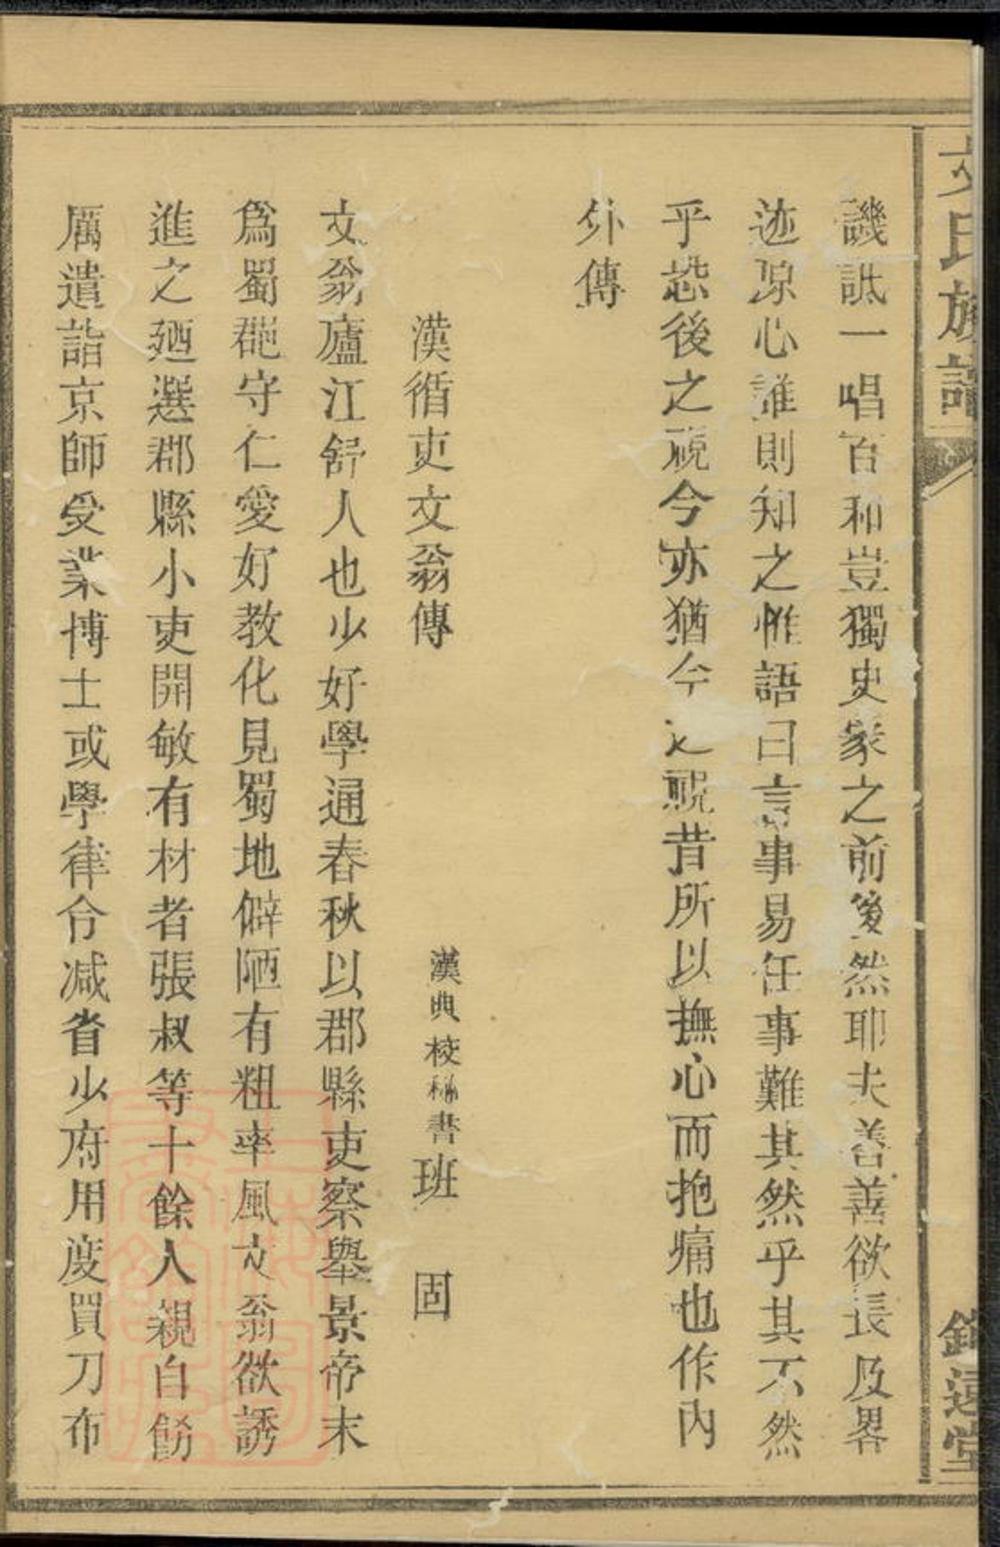 文氏族譜
譏詆一唱百和豈獨史家之前後然耶夫善善欲長及畧
迹原心誰則知之惟語曰言事易任事難其然乎其不然
乎恐後之視今亦猶今之視昔所以撫心而抱痛也作內
外傳
漢循吏文翁傳
漢典校秘書班固
文翁廬江舒人也少好學通春秋以郡縣吏察舉景帝末
爲蜀郡守仁愛好教化見蜀地僻陋有粗率風文翁欲誘
進之廼選郡縣小吏開敏有材者張叔等十餘人親自飭
厲遣詣京師受業博士或學律令減省少府用度買刀布
遠堂